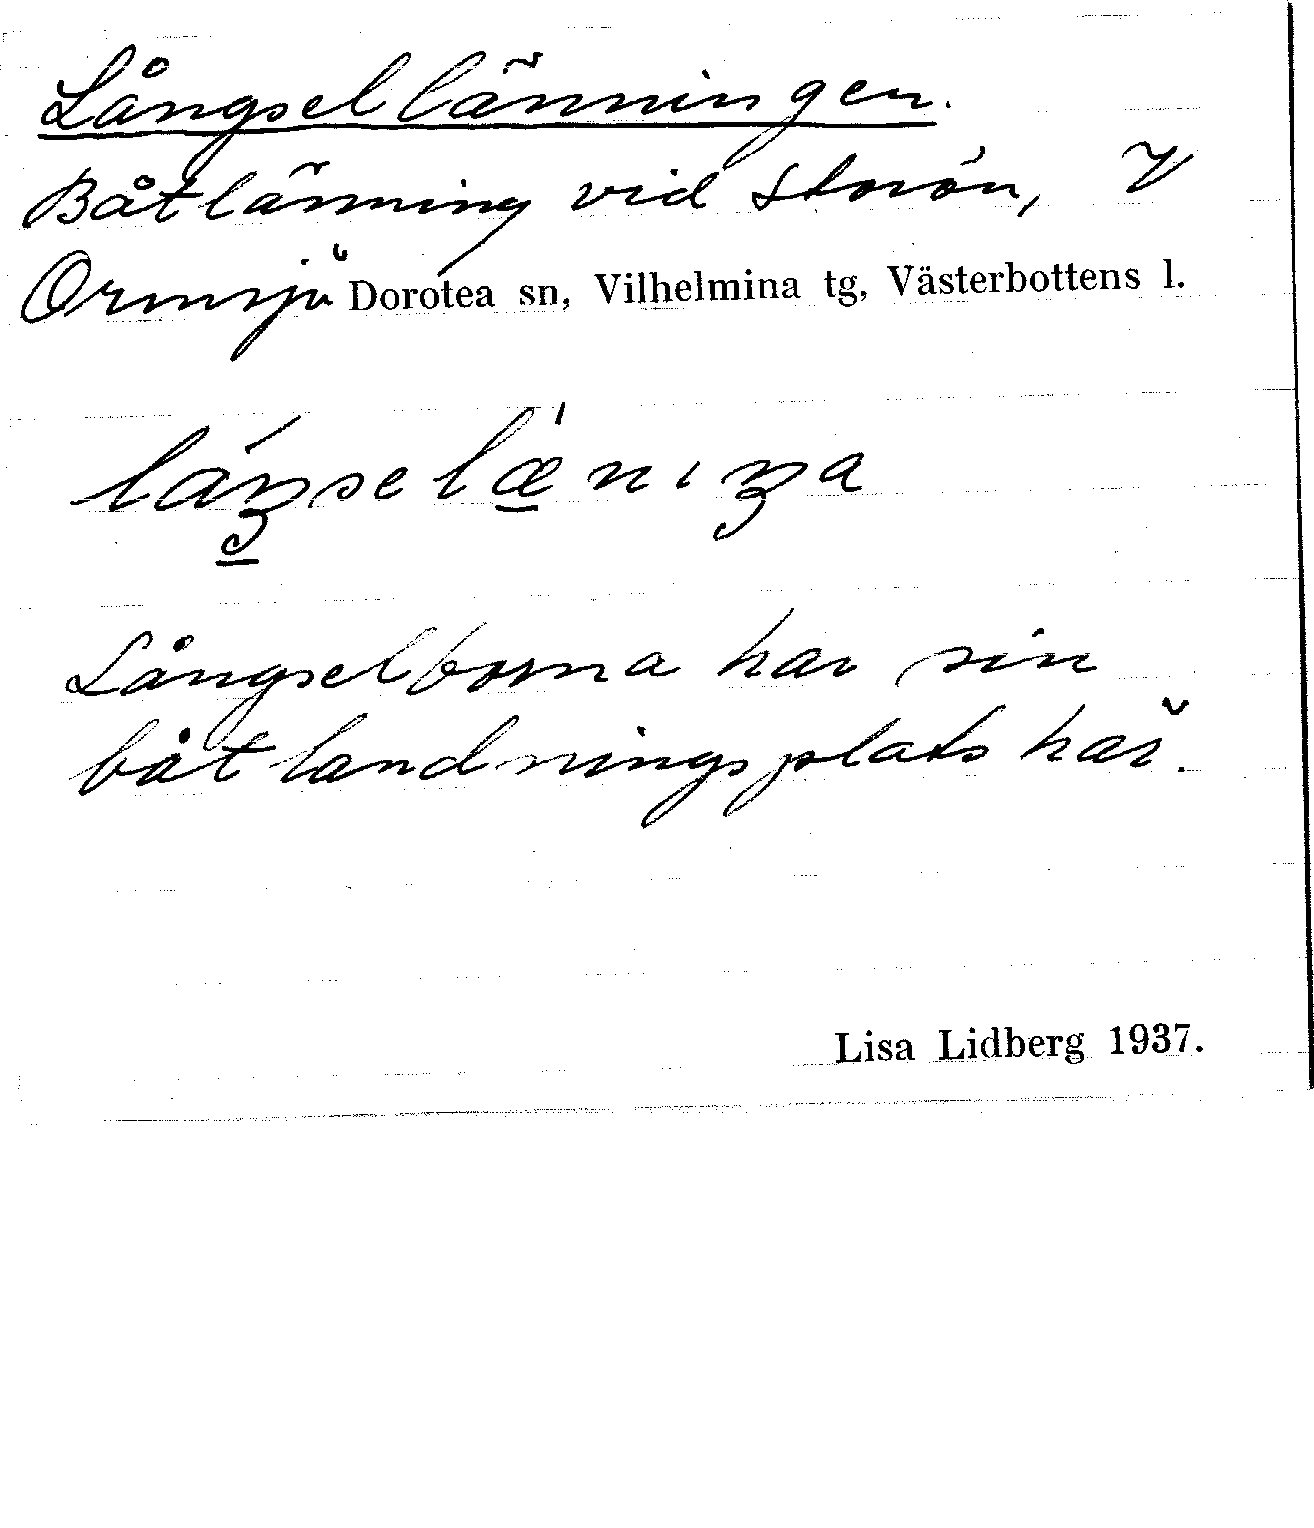 Långsellänningen.
Båtlänning vid Storön, V
Ormsjö Dorotea sn, Vilhelmina tg, Västerbottens l.
láŋselæ̀nıŋa
Långselborna har sin
båtlandningsplats här.
Lisa Lidberg 1937.